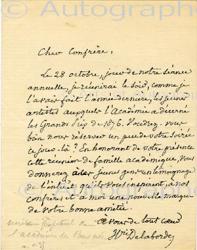 © Autograph
Cher Confrère,
Le 28 octobre, jour de notre séance
annuelle, je réunirai le soir, comme je
l'avais fait l'année dernière, les jeunes
artistes auxquels l'Académie a décerné
les Grands Prix de 1876. Voudrez-vous
bien nous réserver un peu de votre soirée
ce jour-là ? En honorant de votre présence
cette réunion de famille académique, vous
donnerez à des jeunes gens un témoignage
de l'intérêt qu'ils vous inspirent, à nos
confrères et à moi une nouvelle marque
de votre bonne amitié.
à vous de tout cœur
Hri Delaborde